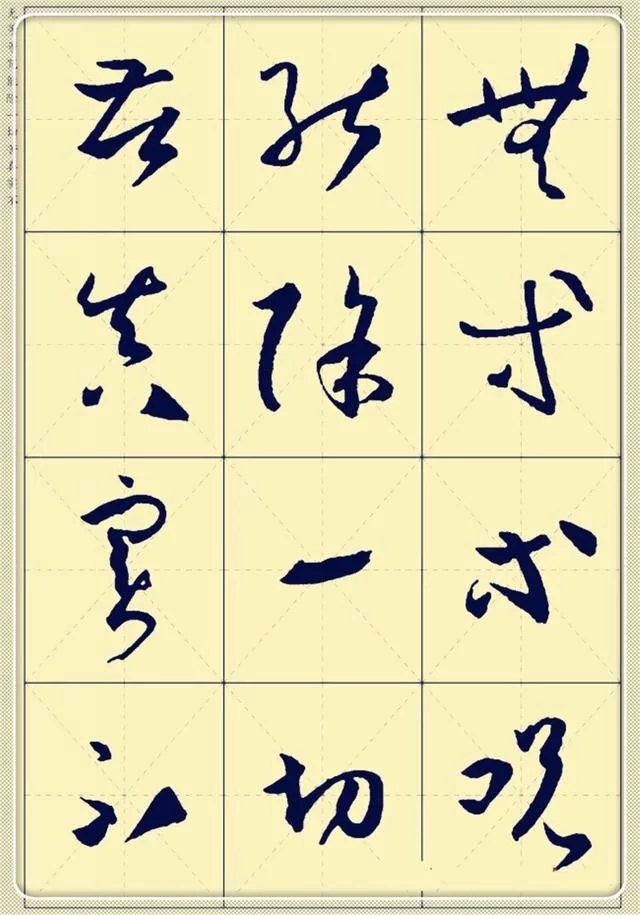 無等等呪
能除一切
苦真實不